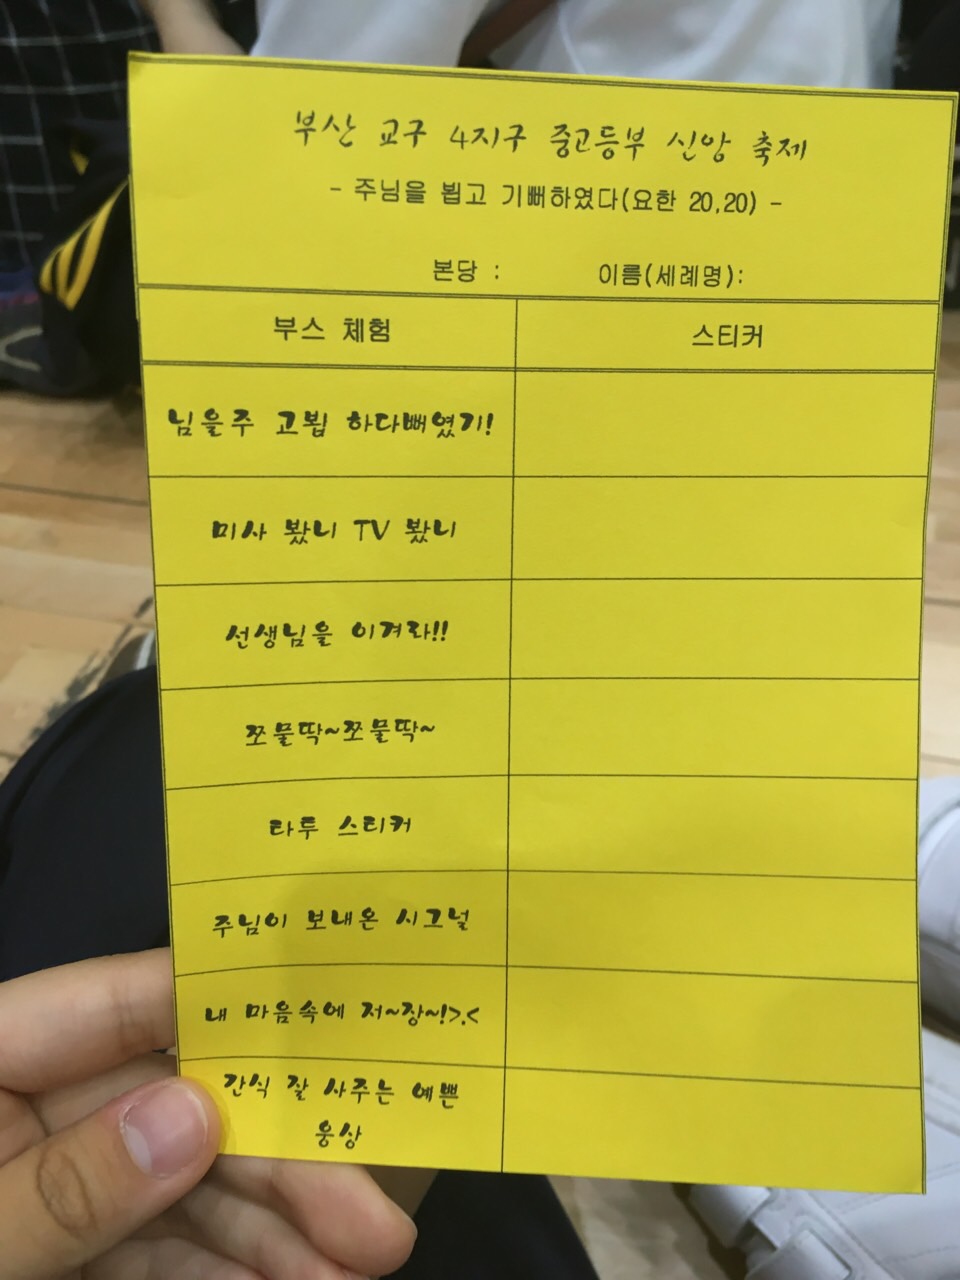 부산 교구 4지구 중고등부 신앙 축제
- 주님을 뵙고 기뻐하였다(요한 20,20) -
본당 : 이름(세례명):
부스 체험 스티커
님을주 고뵙 하다뻐였기!
미사 봤니 TV 봤니
선생님을 이겨라!!
쪼물딱~쪼물딱~
타투 스티커
주님이 보내온 시그널
내 마음속에 저~장~!>.<
간식 잘 사주는 예쁜
웅상